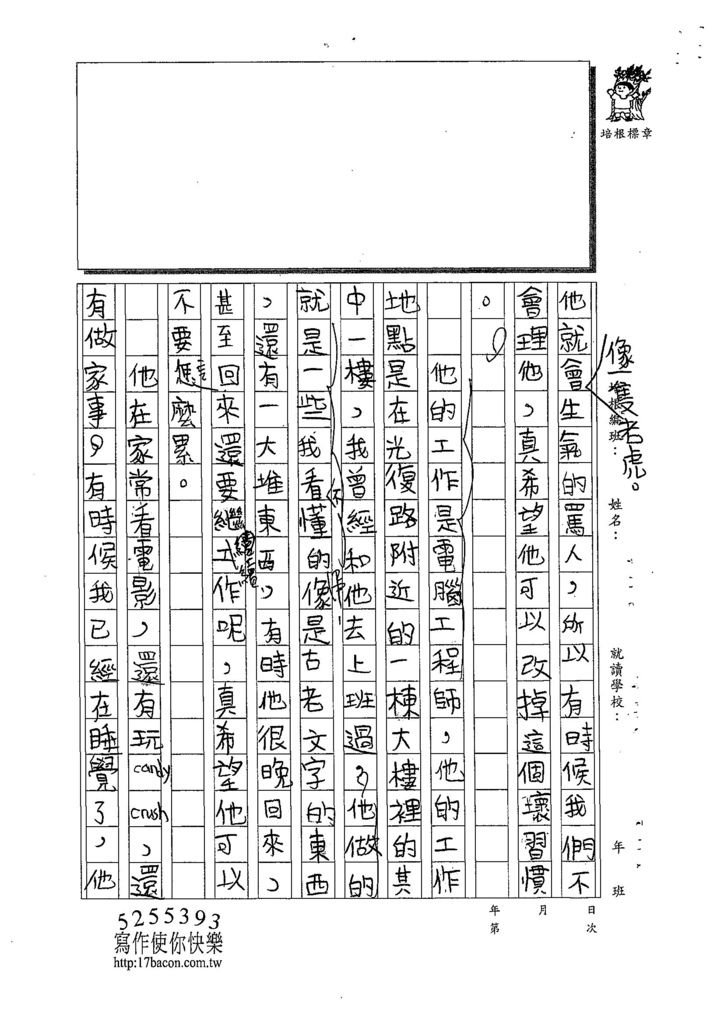 培根標章
他就會生氣的罵人，所以有時候我們不
像一隻老虎。
會理他，真希望他可以改掉這個壞習慣
。
他的工作是電腦工程師，他的工作
地點是在光復路附近的一棟大樓裡的其
中一樓，我曾經和他去上班過，他做的
就是一些我看不懂的像是古老文字的東西
，還有一大堆東西，有時他很晚回來，
甚至回來還要繼續工作呢，真希望他可以
不要怎麼累。
他在家常看電影，還有玩candy crush，還
有做家事，有時候我已經在睡覺了，他
培根編班：
姓名：
就讀學校：
年 班
年 月 日
第 次
5255393
寫作使你快樂
http:17bacon.com.tw